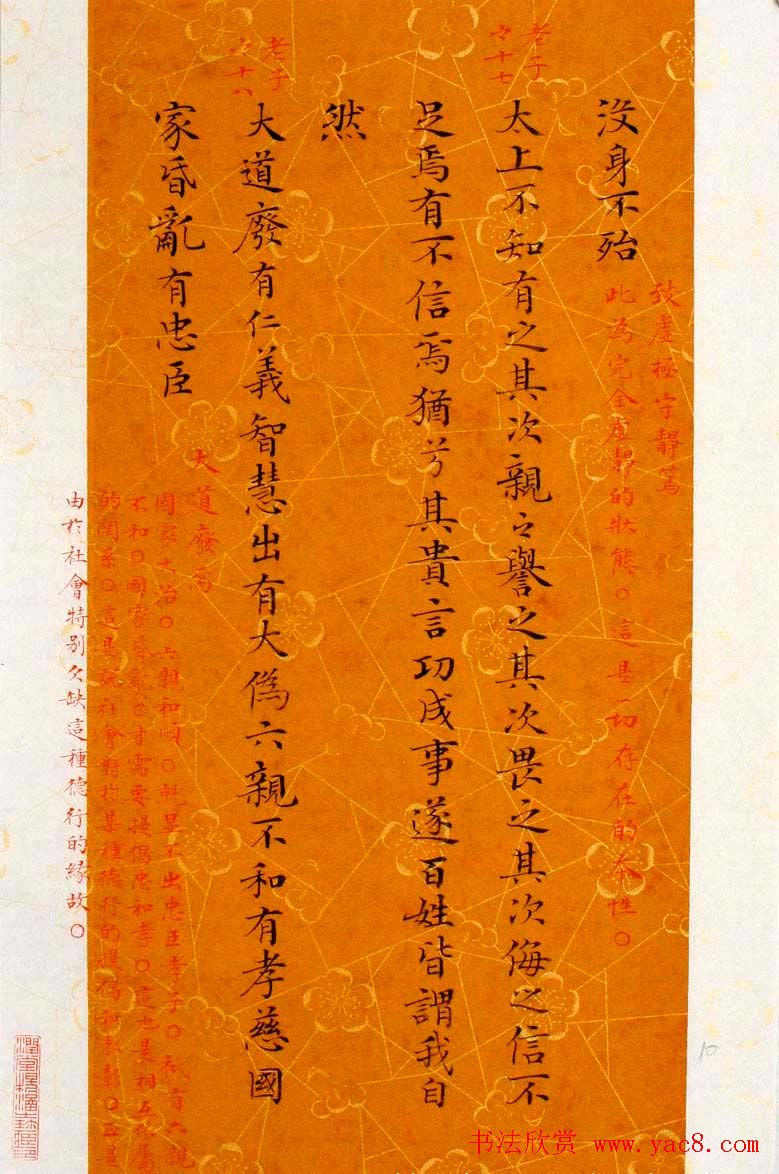 沒身不殆
致虛極守靜篤
此為完全虛靜的狀態。這是一切存在的本性。
老子
六十七
太上不知有之其次親之譽之其次畏之其次侮之信不
足焉有不信焉猶兮其貴言功成事遂百姓皆謂我自
然
老子
六十八
大道廢有仁義智慧出有大偽六親不和有孝慈國
家昏亂有忠臣
大道廢焉
國家大治。六親和順。就显不出忠臣孝子。祇有六親
不和。國家昏亂。才需要提倡忠和孝。這也是相互依屬
的関系。這是說社會對於某種德行的提倡和表彰。正是
由於社會特别欠缺這種德行的緣故。
10
书法欣赏 www.yac8.com